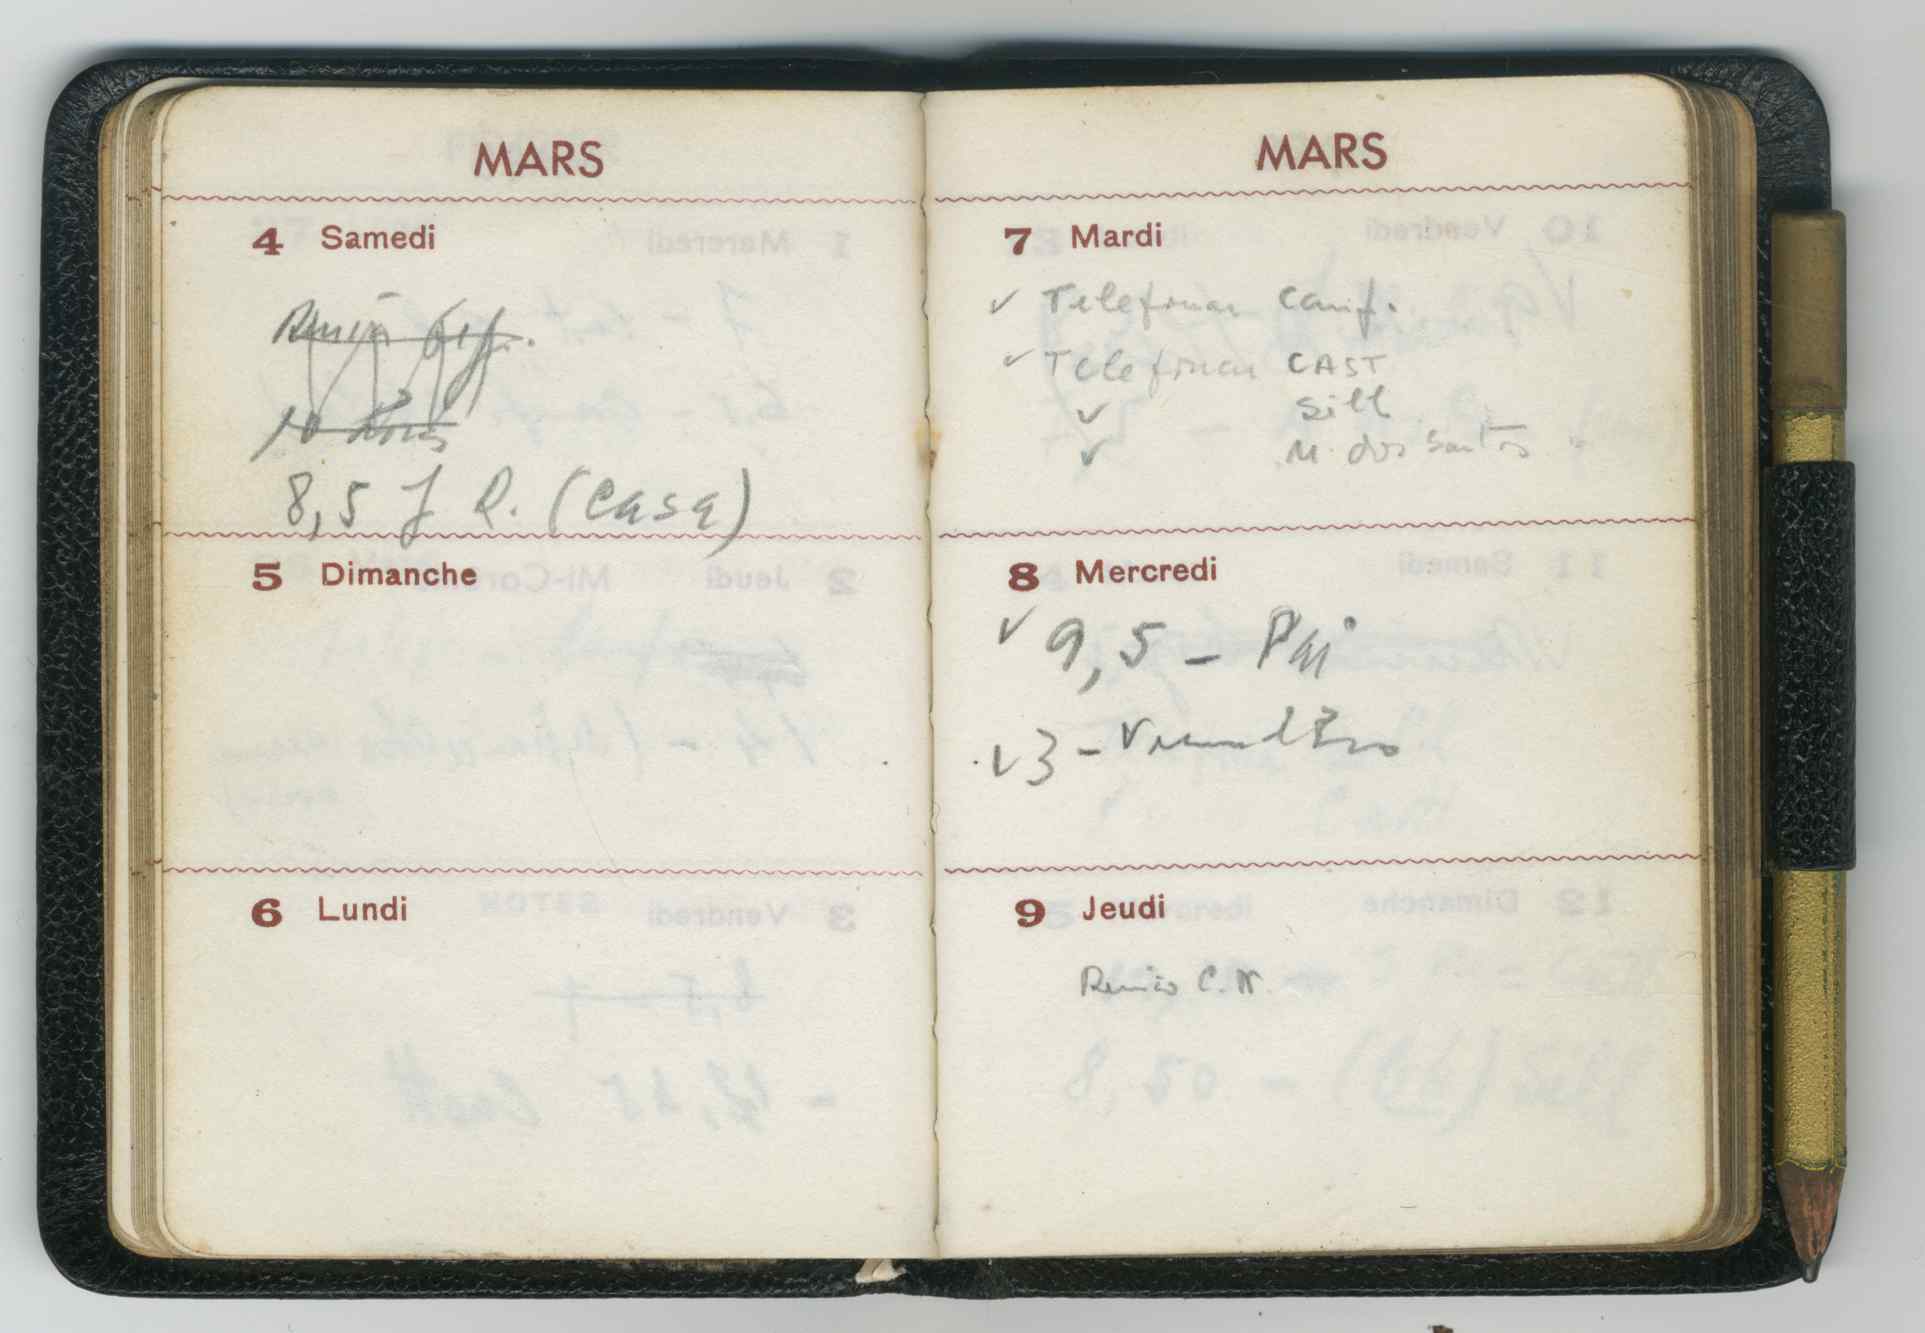 MARS
4 Samedi
10
8,5 J R. (Casa)
5 Dimanche
6 Lundi
MARS
7 Mardi
✓ Telefonar Conf.
✓ Telefonar CAST
✓ Sill
✓ M. dos Santos
8 Mercredi
✓ 9,5 - Pai
✓ 3 -
9 Jeudi
C. N.